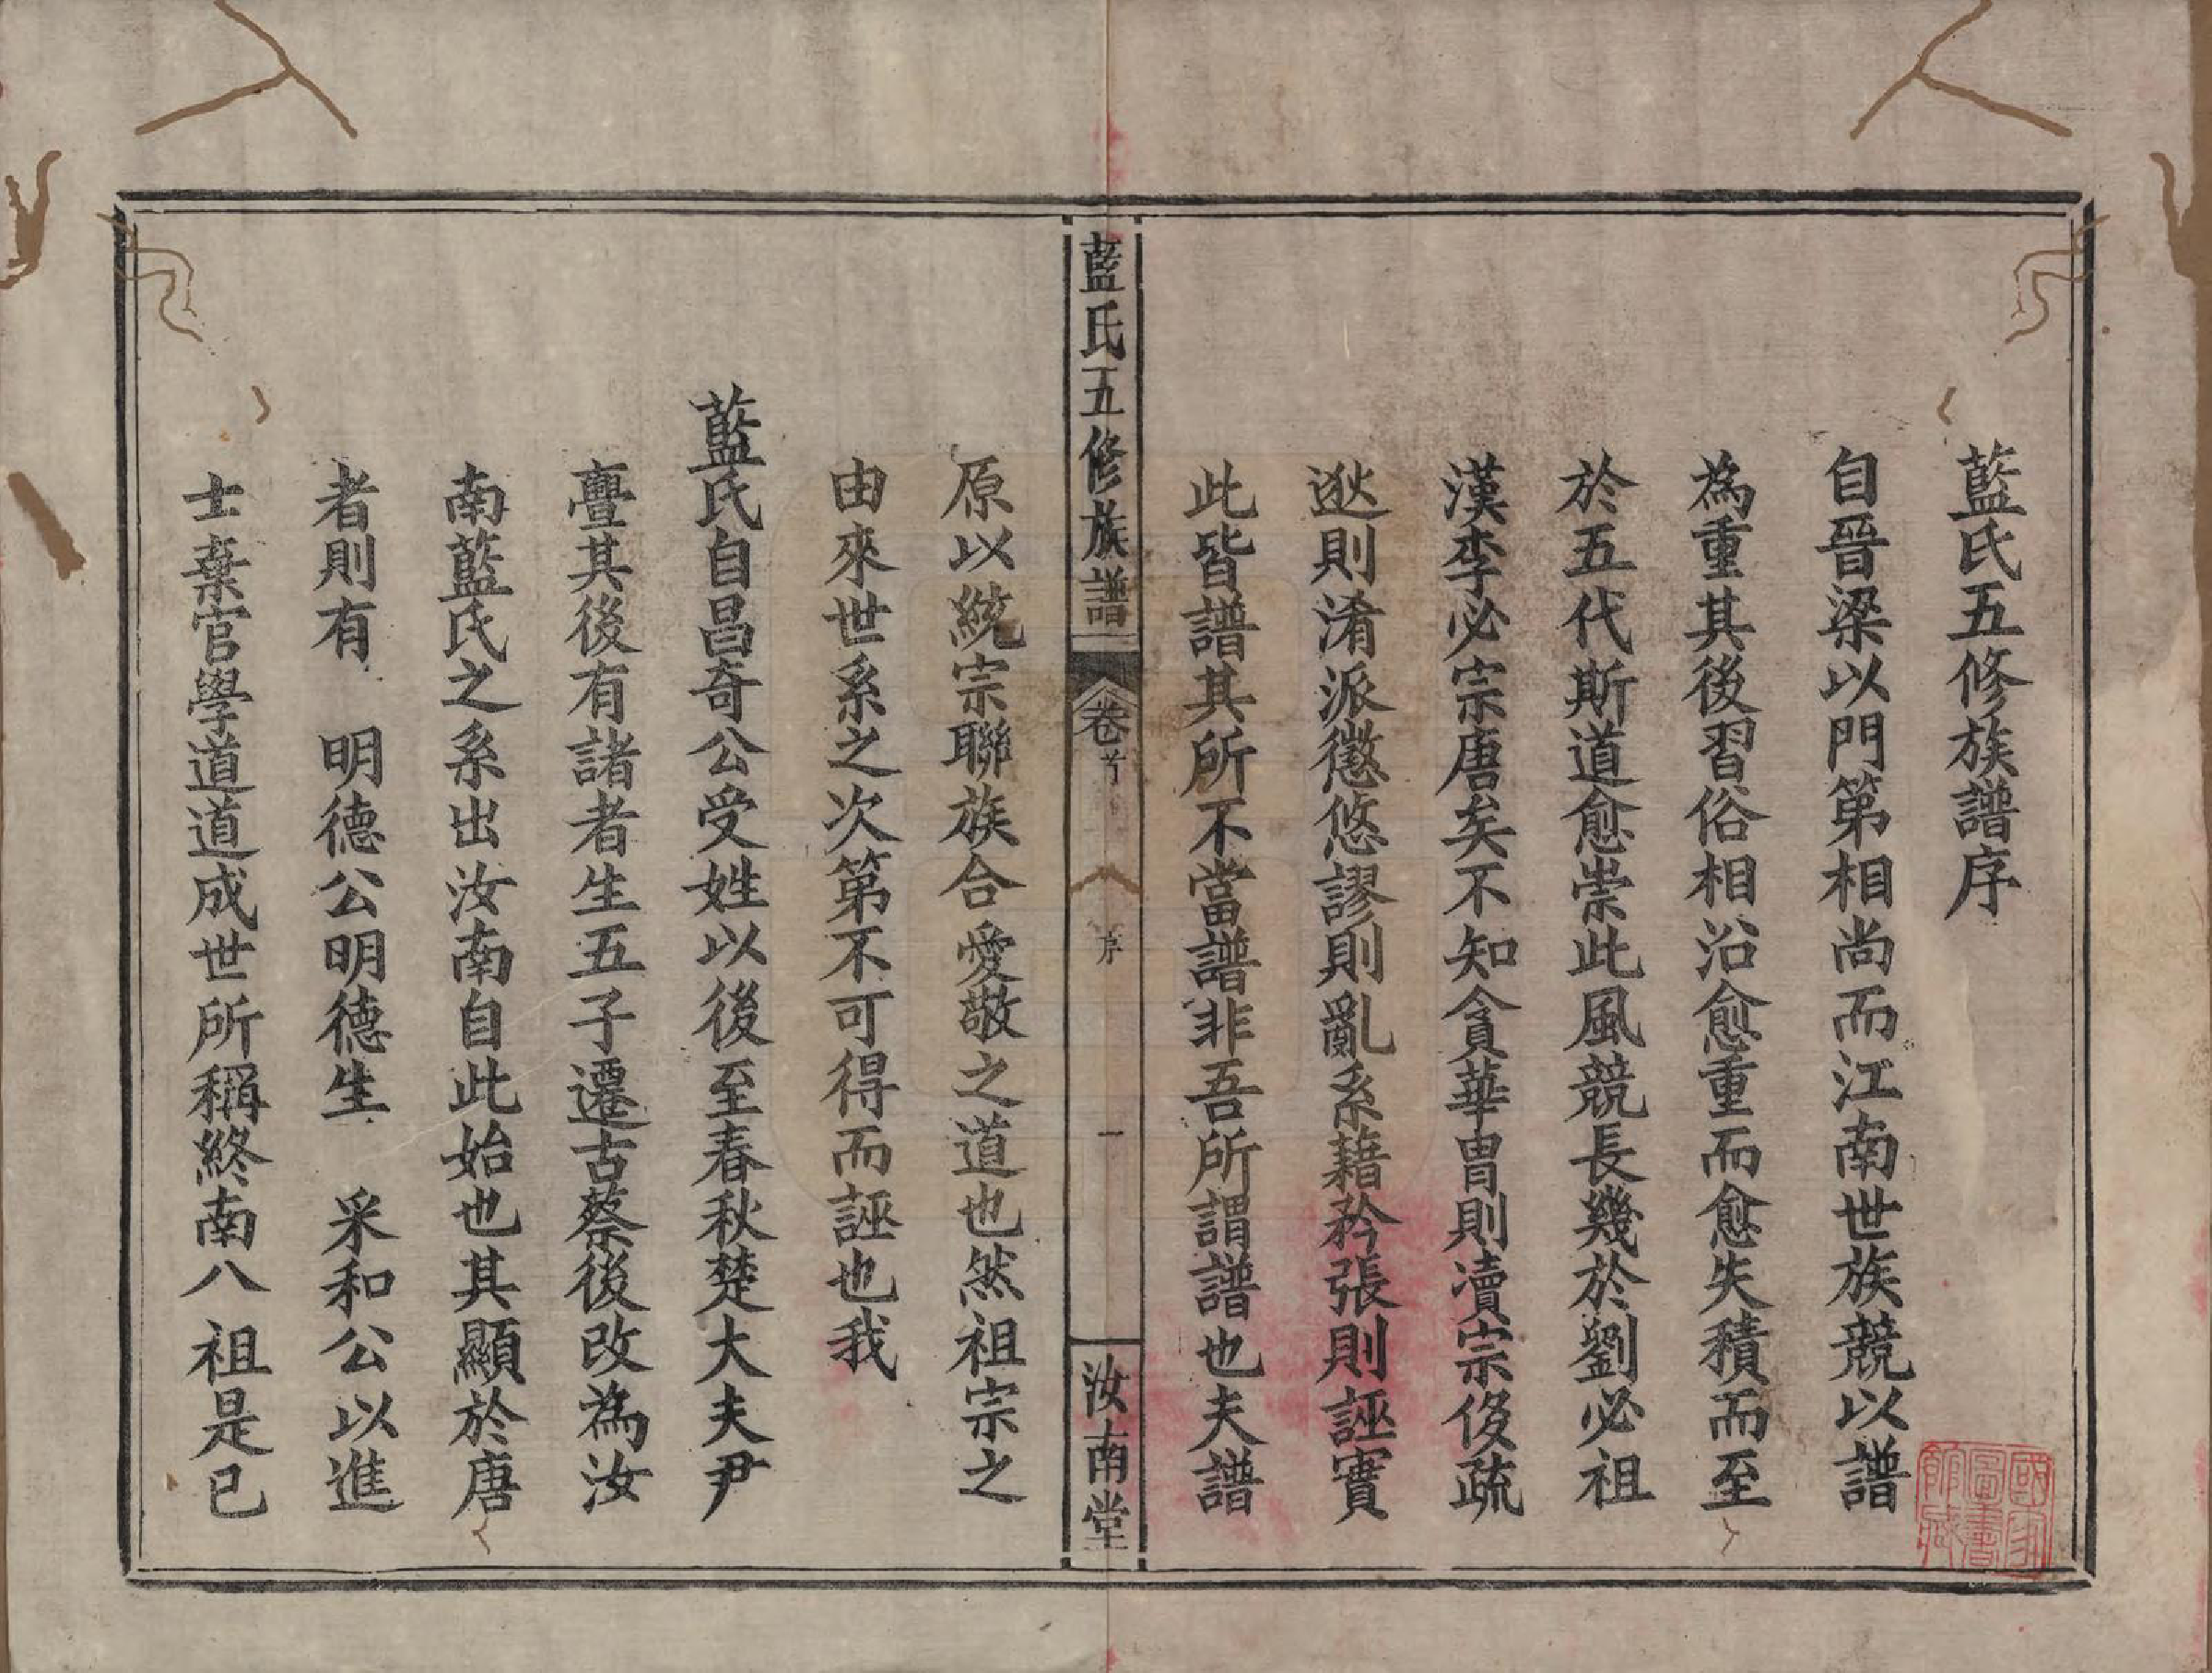 藍氏五修族譜序
自晉梁以門第相尚而江南世族競以譜
為重其後習俗相沿愈重而愈失積而至
於五代斯道愈崇此風競長幾於劉必祖
漢李必宗唐矣不知貪華胄則瀆宗後疏
逖則淆派懲悠謬則亂系藉矜張則誣實
此皆譜其所不當譜非吾所謂譜也夫譜
藍氏五修族譜
卷首
序
一
汝南堂
原以統宗聯族合愛敬之道也然祖宗之
由來世系之次第不可得而誣也我
藍氏自昌奇公受姓以後至春秋楚大夫尹
亹其後有諸者生五子遷古蔡後改為汝
南藍氏之系出汝南自此始也其顯於唐
者則有 明德公明德生 采和公以進
士棄官學道道成世所稱終南八祖是已
國家圖書館藏